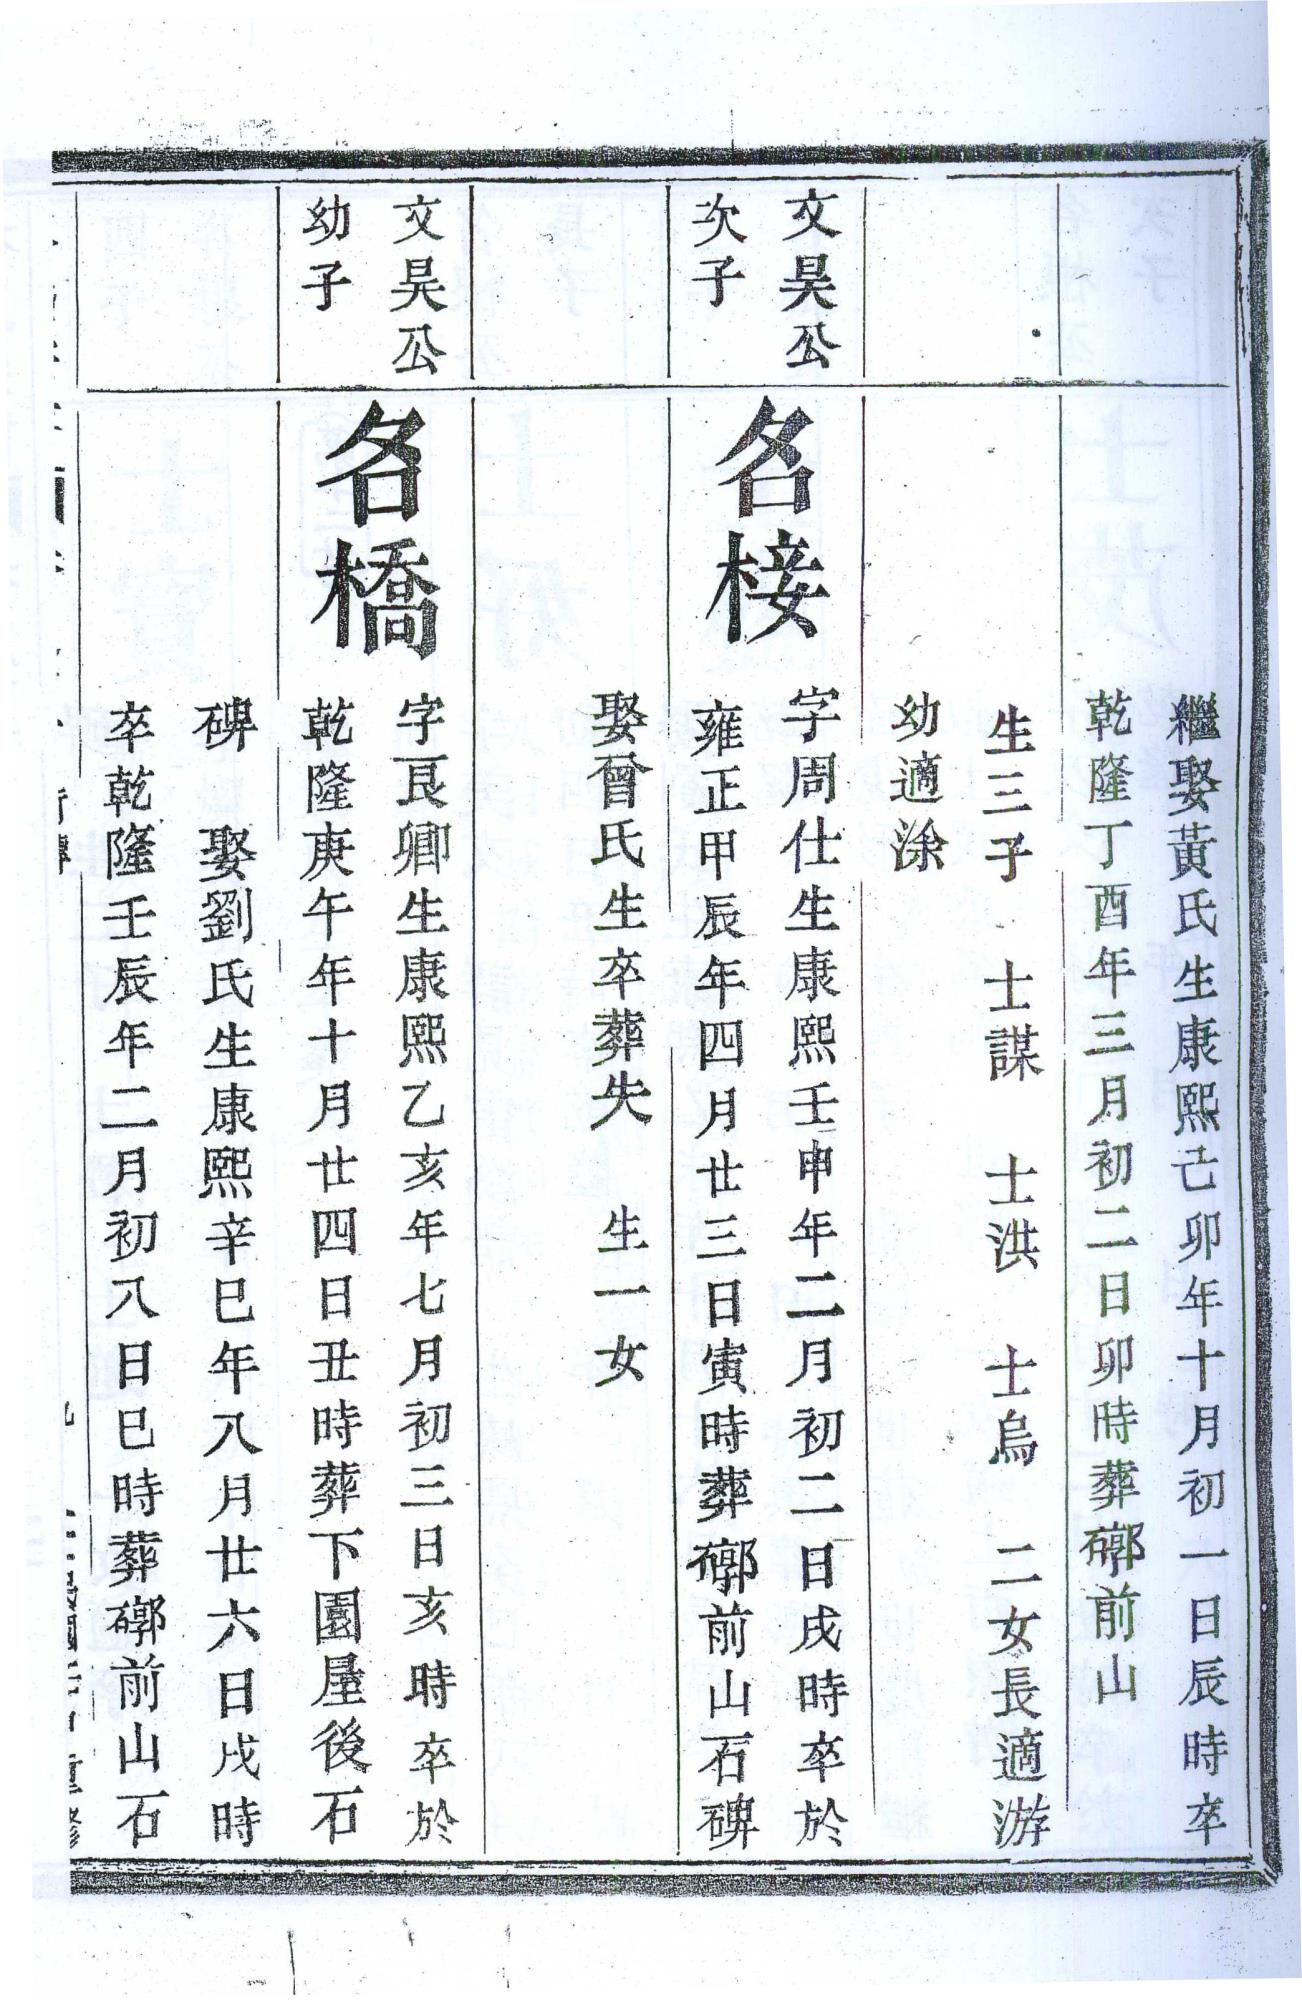 繼娶黃氏生康熙己卯年十月初一日辰時卒
乾隆丁酉年三月初二日卯時葬𥕏前山
生三子　士謀　士洪　士烏　二女長適游
幼適涂
文昊公
次子
名椄
字周仕生康熙壬申年二月初二日戌時卒於
雍正甲辰年四月廿三日寅時葬𥕏前山石碑
娶曾氏生卒葬失　生一女
文昊公
幼子
名橋
字艮卿生康熙乙亥年七月初三日亥時卒於
乾隆庚午年十月廿四日丑時葬下園屋後石
碑　娶劉氏生康熙辛巳年八月廿六日戌時
卒乾隆壬辰年二月初八日巳時葬𥕏前山石